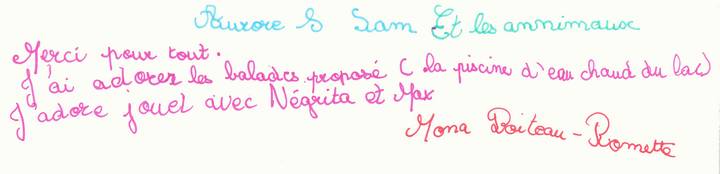 Aurore & Sam Et les annimaux
Merci pour tout.
J'ai adorer les balades proposé ( la piscine d'eau chaud du lac)
J'adore jouer avec Négrita et Max
Mona Poiteau - Romette